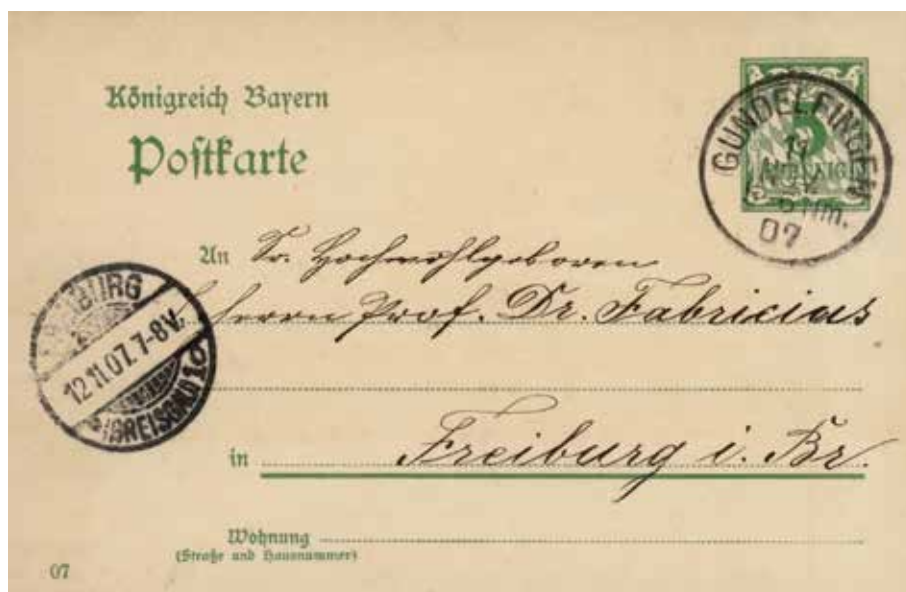 Königreich Bayern
Postkarte
5
PFENNIG
GUNDELFINGEN
11
NOV.
Nm.
07
An Sr. Hochwohlgeboren
Herrn Prof. Dr. Fabricius
FREIBURG
12.11.07.7-8V.
(BREISGAU) 10
in Freiburg i. Br.
Wohnung
(Straße und Hausnummer)
07